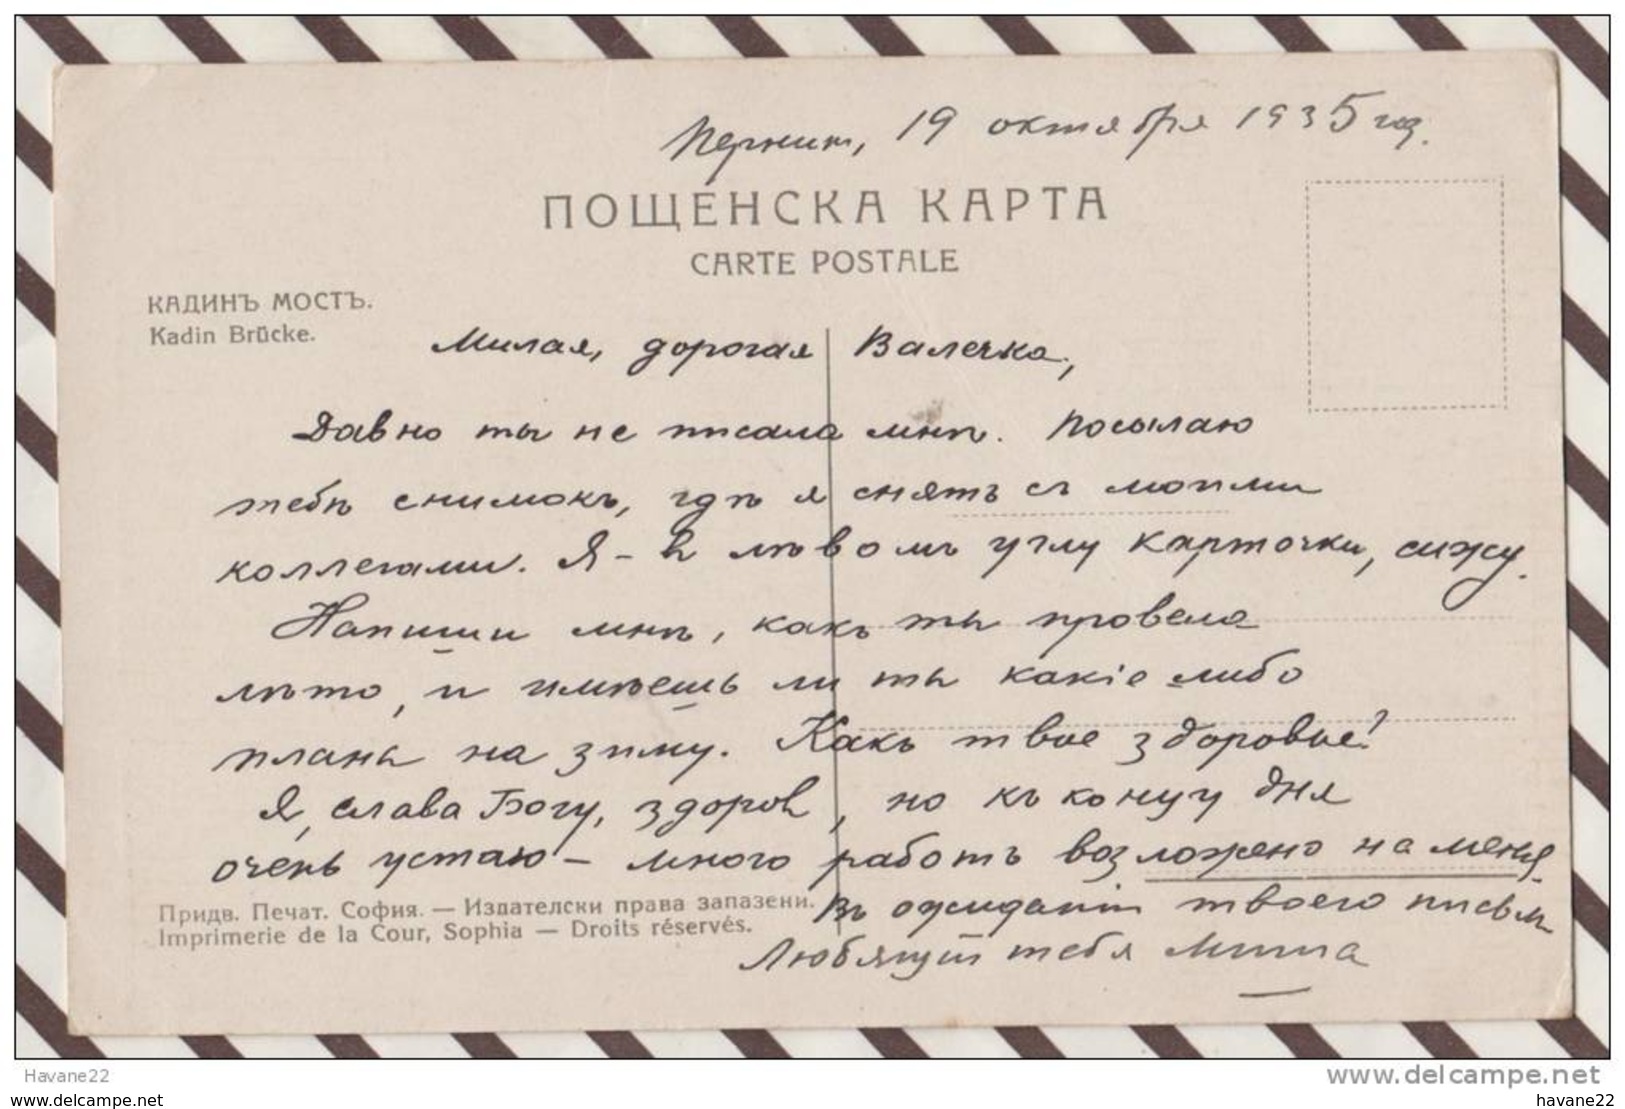 Перник, 19 октября 1935 год.
ПОЩЕНСКА КАРТА
CARTE POSTALE
КАДИНЪ МОСТЪ.
Kadin Brücke.
Милая, дорогая Валечка,
Давно ты не писала мнѣ. Посылаю
тебѣ снимокъ, гдѣ я снятъ съ моими
коллегами. Я – въ лѣвомъ углу карточки, сижу.
Напиши мнѣ, какъ ты провела
лѣто, и имѣешь ли ты какіе либо
планы на зиму. Какъ твое здоровье?
Я, слава Богу, здоров, но къ концу дня
очень устаю – много работъ возложено на меня.
Въ ожиданіи твоего письма
Любящій тебя Миша
Придв. Печат. София. — Издателски права запазени.
Imprimerie de la Cour, Sophia — Droits réservés.
Havane22
www.delcampe.net
www.delcampe.net
havane22